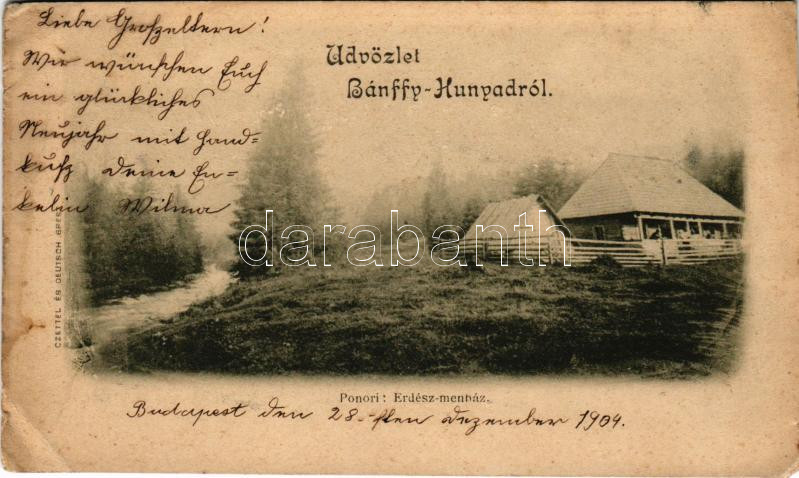 Liebe Großeltern!
Wir wünschen Euch
ein glückliches
Neujahr mit Hand-
kuß deine En-
kelin Wilma
Üdvözlet
Bánffy-Hunyadról.
CZETTEL ÉS DEUTSCH
darabanth.com
Ponori: Erdész-menház.
Budapest den 28-sten Dezember 1904.